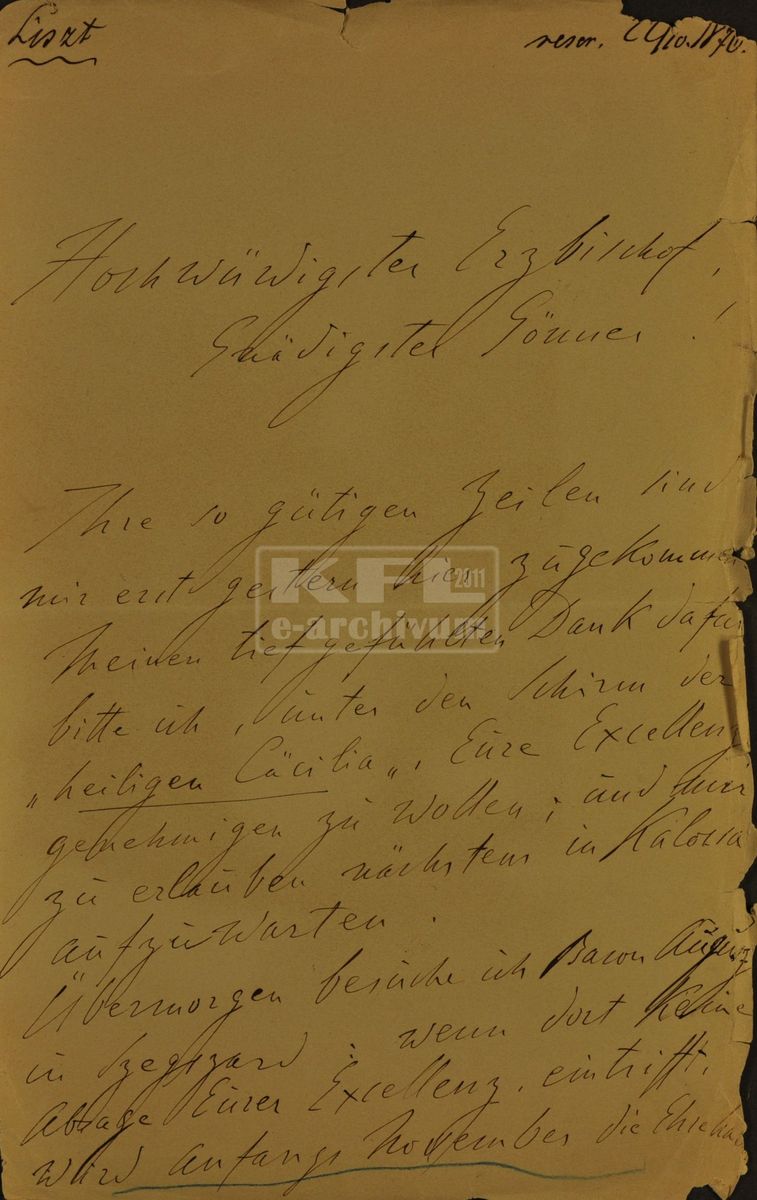 Liszt
Hochwürdigster Erzbischof,
Gnädigster Gönner!
Ihre so gütigen Zeilen sind
mir erst gestern hier zugekommen
KFL 2011
e-archivum
Meinen tiefgefühlten Dank dafür
bitte ich, unter den Schirm der
„heiligen Cäcilia„, Eure Excellenz
genehmigen zu wollen; und mir
zu erlauben nächstens in Kalossa
aufzuwarten.
Übermorgen besuche ich Baron Augusz
in Szegszard; wenn dort keine
Absage Eurer Excellenz, eintrifft,
wird anfangs November die Ehre haben